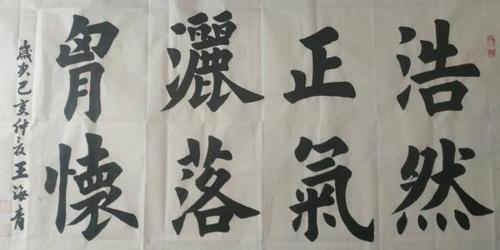 浩然
正氣
灑落
胷懷
歲次己亥仲夏王海青